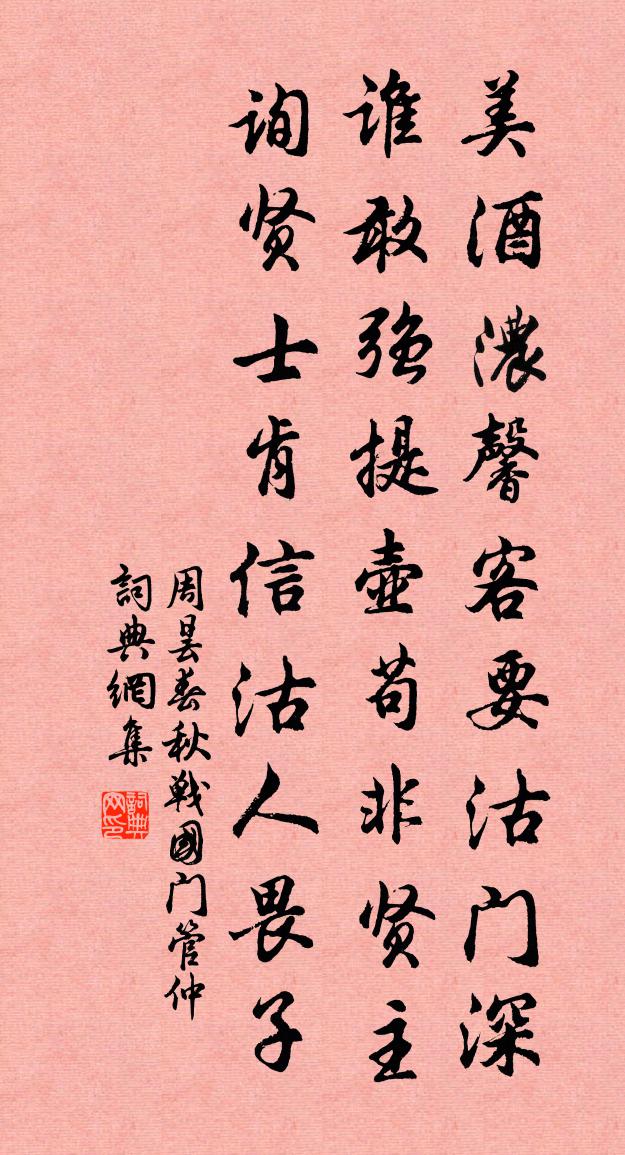 美酒濃馨客要沽门深
谁敢强提壶苟非贤主
询贤士肯信沽人畏子
周昙春秋戰國门管仲
詞典網集
詞典网印